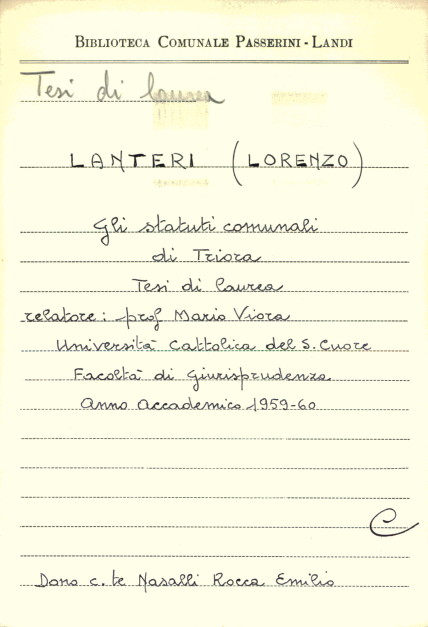 BIBLIOTECA COMUNALE PASSERINI - LANDI
Tesi di laurea
LANTERI (LORENZO)
Gli statuti comunali
di Triora
Tesi di laurea
relatore: prof Mario Viora
Università Cattolica del S. Cuore
Facoltà di Giurisprudenza
Anno Accademico 1959-60
C
Dono c.te Nasalli Rocca Emilio